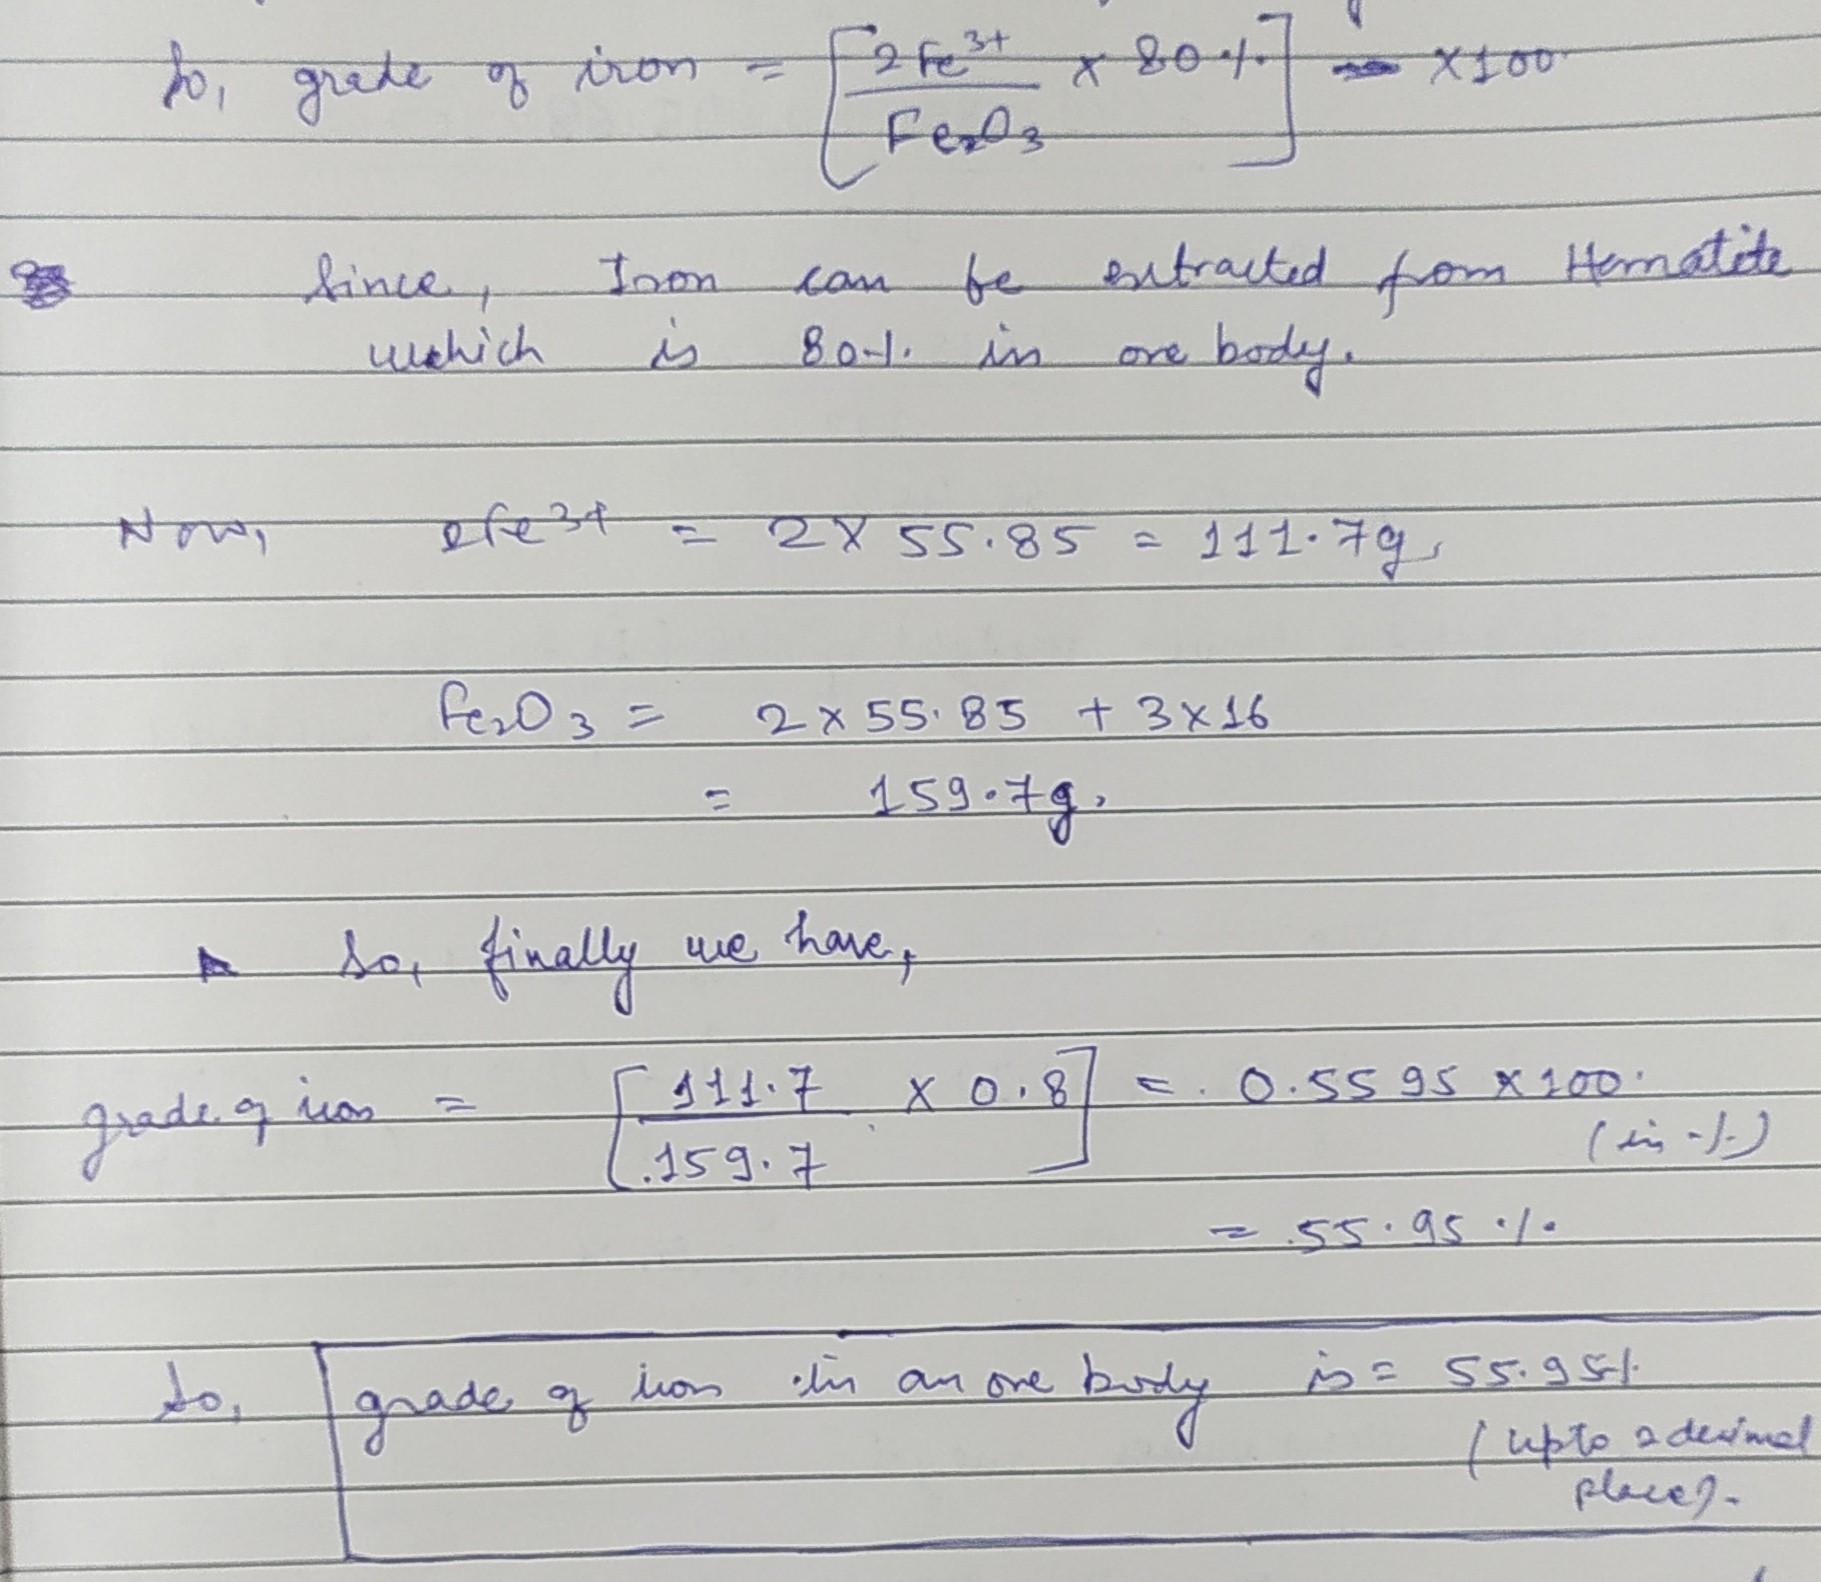 So, grade of iron = [2Fe³⁺/Fe₂O₃ × 80%] × 100
Since, Iron can be extracted from Hematite
which is 80% in ore body.
Now, 2Fe³⁺ = 2 × 55.85 = 111.7g,
Fe₂O₃ = 2 × 55.85 + 3 × 16
= 159.7g,
So, finally we have,
grade of iron = [111.7/159.7 × 0.8] = 0.5595 × 100
(in %)
= 55.95 %
So, grade of iron in an ore body is = 55.95%
(upto 2 decimal
place).